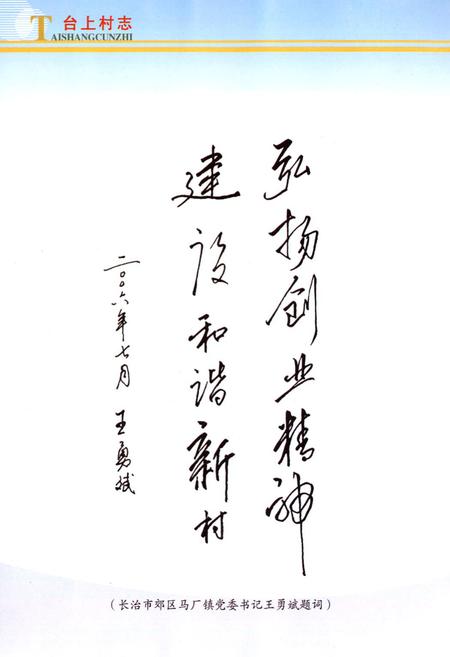 台上村志
TAISHANGCUNZHI
弘扬创业精神
建设和谐新村
二〇〇六年七月 王勇斌
(长治市郊区马厂镇党委书记王勇斌题词)